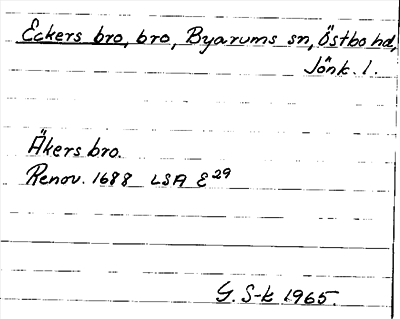 Eckers bro, bro, Byarums sn, Östbo hd,
Jönk. l.
Åkers bro.
Renov. 1688 LSA E29
G. S-k 1965.